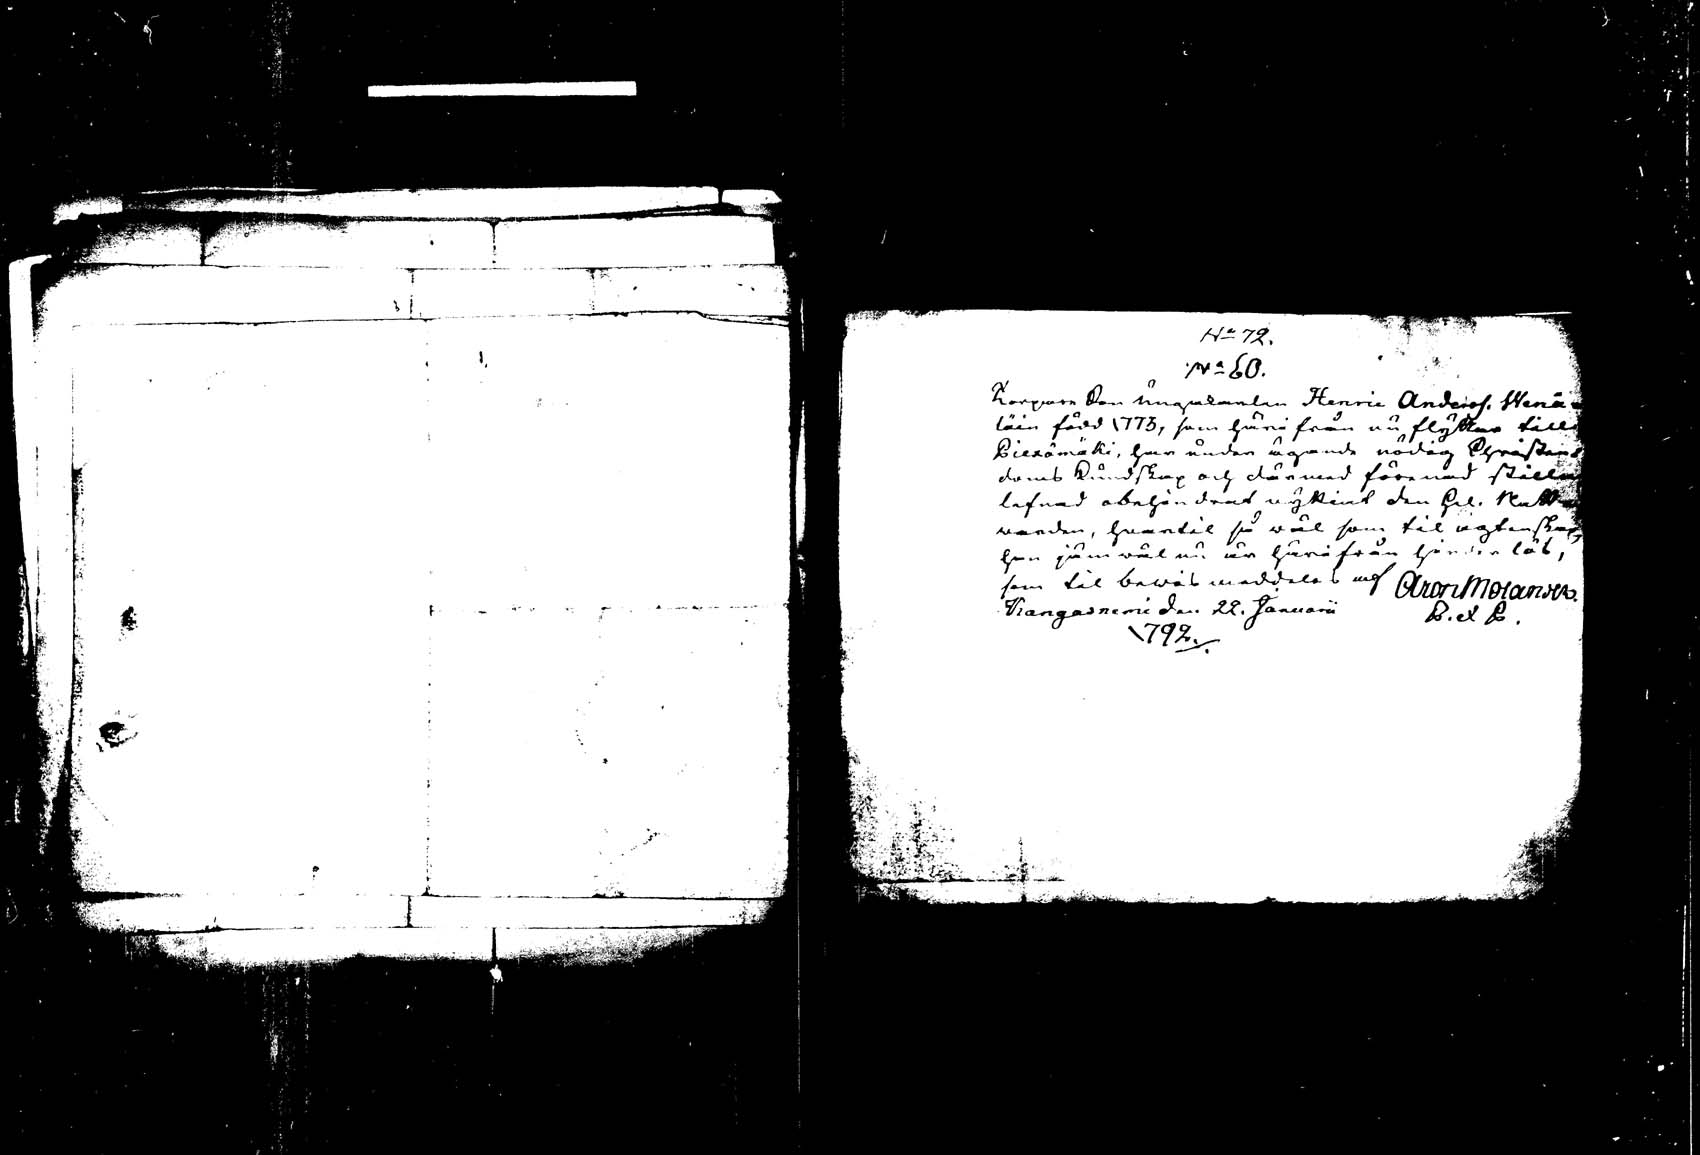 No 72.
No 60.
Torparn Ran ungakarlen Henric Andersf. Wenä-
läin född 1773, som härifrån nu flyttar till
Piexämäki, har under ägande nödig Christen-
doms kundskap och därmed förenad stilla
lefnad obehindrat nyttjat den Hel. Natt-
warden, hwartil så wäl som til ägtenskap
han jämwäl nu är härifrån hinderlös,
som til bewis meddelas af Aron Molander.
Kangasniemi den 22. Januarii P. et P.
1792.